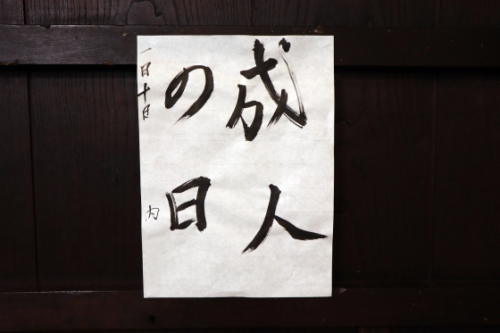 成人
の日
一月十日